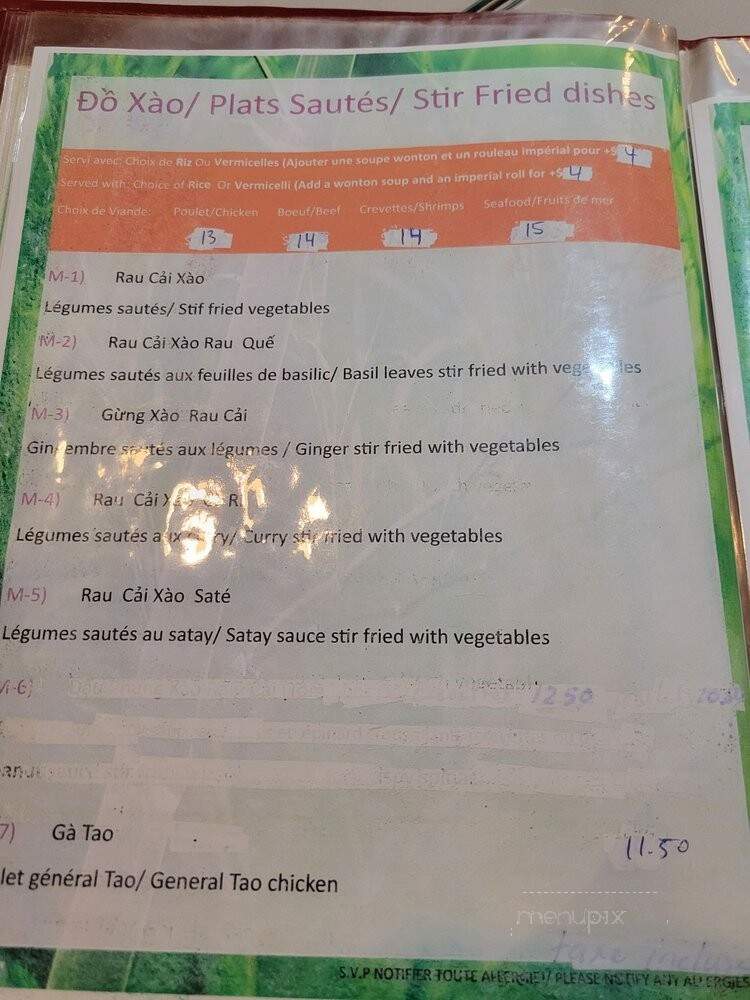 Đồ Xào/ Plats Sautés/ Stir Fried dishes
Servi avec: Choix de Riz Ou Vermicelles (Ajouter une soupe wonton et un rouleau impérial pour +$ 4
Served with: Choice of Rice Or Vermicelli (Add a wonton soup and an imperial roll for +$ 4
Choix de Viande: Poulet/Chicken Boeuf/Beef Crevettes/Shrimps Seafood/Fruits de mer
13 14 14 15
M-1) Rau Cải Xào
Légumes sautés/ Stif fried vegetables
M-2) Rau Cải Xào Rau Quế
Légumes sautés aux feuilles de basilic/ Basil leaves stir fried with
M-3) Gừng Xào Rau Cải
sautés aux légumes / Ginger stir fried with vegetables
M-4) Rau Cải
Légumes sautés Curry fried with vegetables
M-5) Rau Cải Xào Saté
Légumes sautés au satay/ Satay sauce stir fried with vegetables
M-6) 12 50
7) Gà Tao 11.50
let général Tao/ General Tao chicken
menupix
taxe
S.V.P NOTIFIER TOUTE ALLERGIE/ PLEASE NOTIFY ANY ALLERGIES